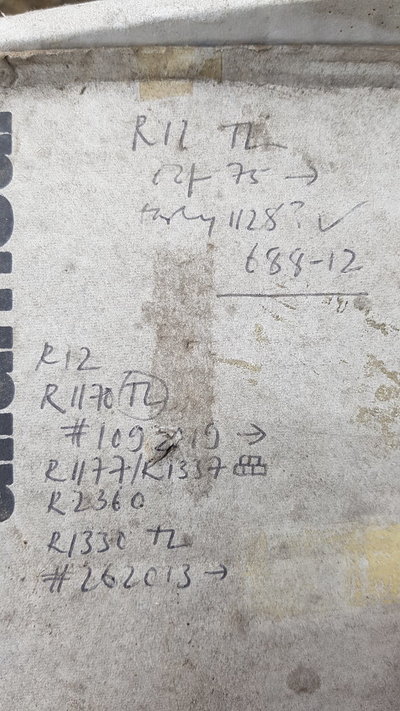 R12 TL
75 →
1128? ✓
688-12
R12
R1170 (TL)
→
R1177/R1337
R2360
R1330 TL
#262013 →